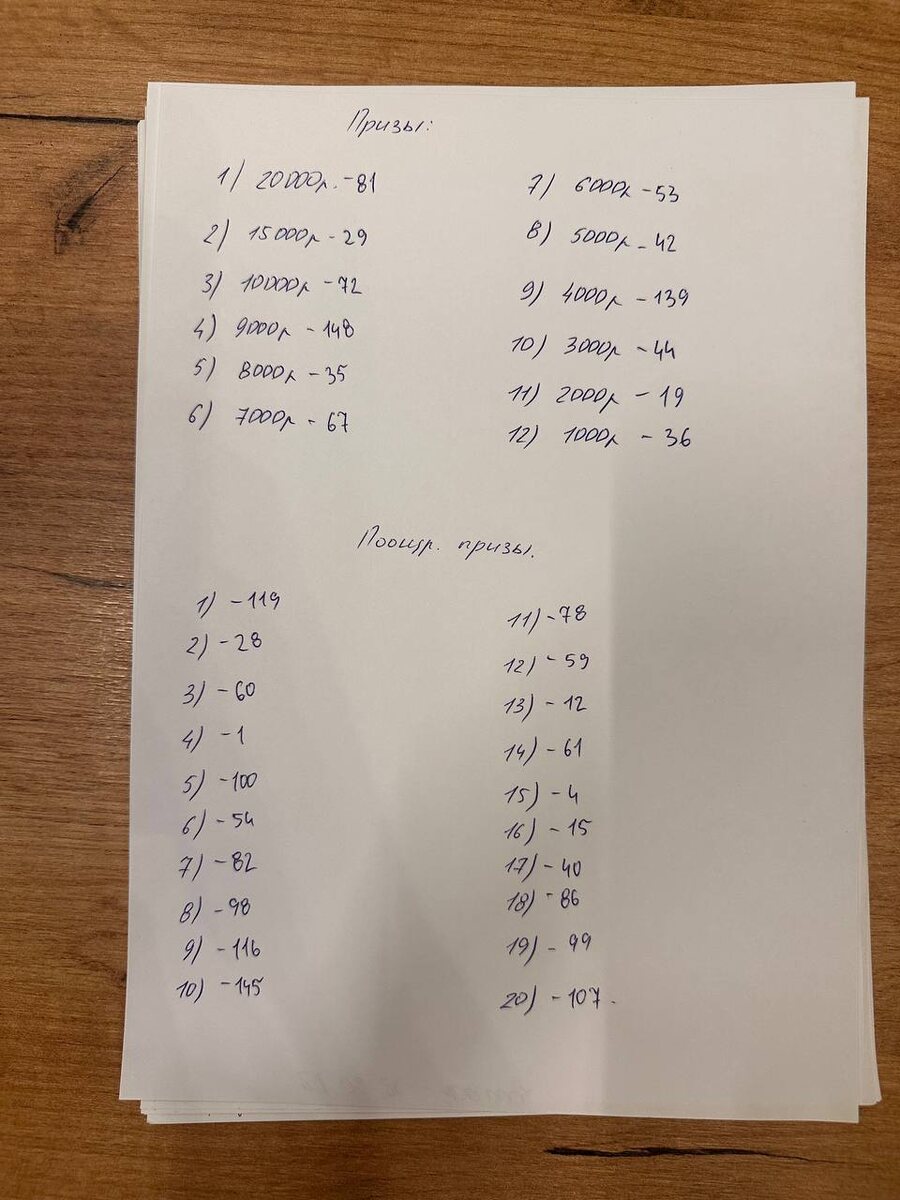 Призы:
1) 20000р. - 81
2) 15000р - 29
3) 10000р - 72
4) 9000р - 148
5) 8000р - 35
6) 7000р - 67
7) 6000р - 53
8) 5000р - 42
9) 4000р - 139
10) 3000р - 44
11) 2000р - 19
12) 1000р - 36
Поощр. призы.
1) - 119
2) - 28
3) - 60
4) - 1
5) - 100
6) - 54
7) - 82
8) - 98
9) - 116
10) - 145
11) - 78
12) - 59
13) - 12
14) - 61
15) - 4
16) - 15
17) - 40
18) - 86
19) - 99
20) - 107.